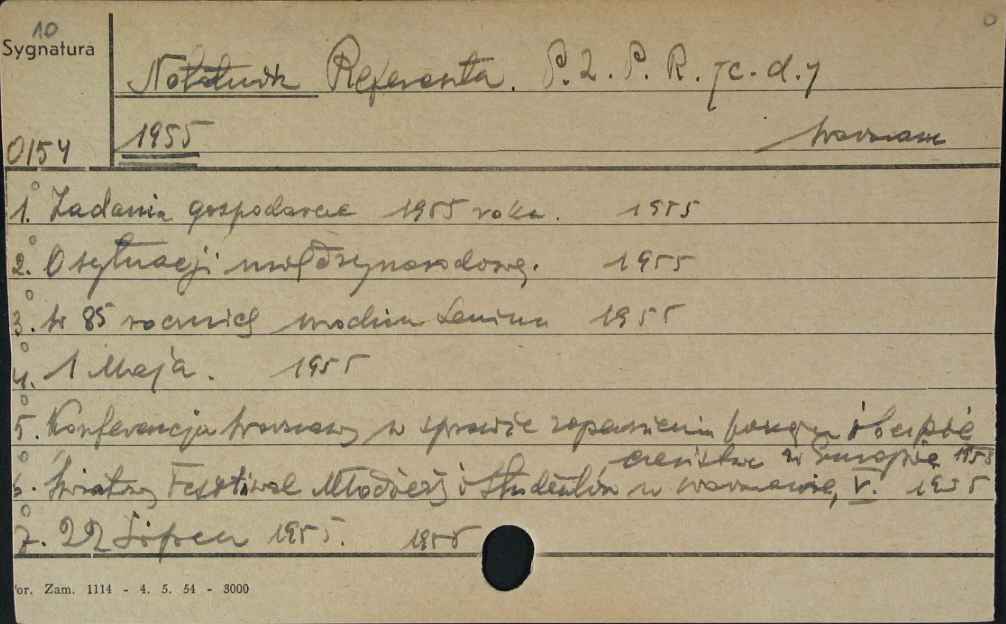 10
Sygnatura
Notatnik Referenta. P. Z. P. R. /c. d./
0154
1955
Warszawa
1. Zadania gospodarcze 1955 roku. 1955
2. O sytuacji międzynarodowej. 1955
3. W 85 rocznicę urodzin Lenina 1955
4. 1 Maja. 1955
5. Konferencja Warszawy w sprawie zapewnienia pokoju i bezpie
czeństwa w Europie 1955
6. Światowy Festiwal Młodzieży i Studentów w Warszawie, V. 1955
7. 22 Lipca 1955. 1955
or. Zam. 1114 - 4. 5. 54 - 3000